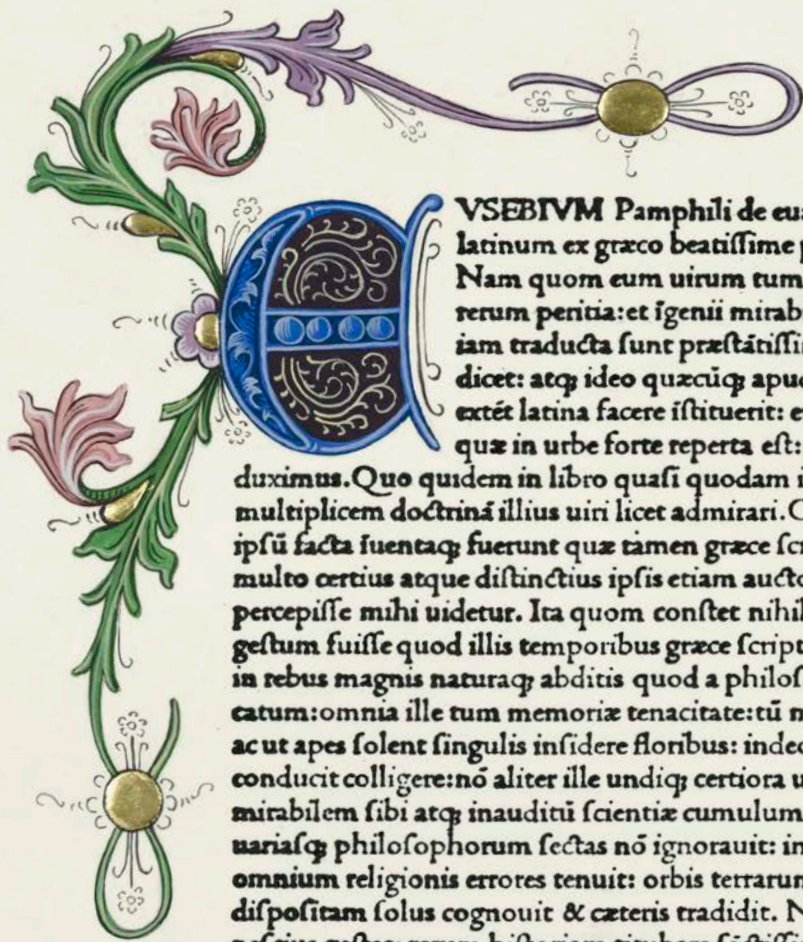 EVSEBIVM Pamphili de eua
latinum ex græco beatiſſime p
Nam quom eum uirum tum
rerum peritia:et īgenii mirab
iam traducta ſunt præſtātiſſi
dicet: atqꝫ ideo quæcūqꝫ apu
extēt latina facere īſtituerit: e
quæ in urbe forte reperta eſt:
duximus.Quo quidem in libro quaſi quodam i
multiplicem doctrinā illius uiri licet admirari.
ipſū facta īuentaqꝫ fuerunt quæ tamen græce ſc
multo certius atque diſtinctius ipſis etiam aucto
percepiſſe mihi uidetur. Ita quom conſtet nihil
geſtum fuiſſe quod illis temporibus græce ſcript
in rebus magnis naturaqꝫ abditis quod a philoſ
catum:omnia ille tum memoriæ tenacitate:tū m
ac ut apes ſolent ſingulis inſidere floribus: inde
conducit colligere:nō aliter ille undiqꝫ certiora u
mirabilem ſibi atqꝫ inauditū ſcientiæ cumulum
uariaſqꝫ philoſophorum ſectas nō ignorauit: in
omnium religionis errores tenuit: orbis terrarum
diſpoſitam ſolus cognouit & cæteris tradidit. N